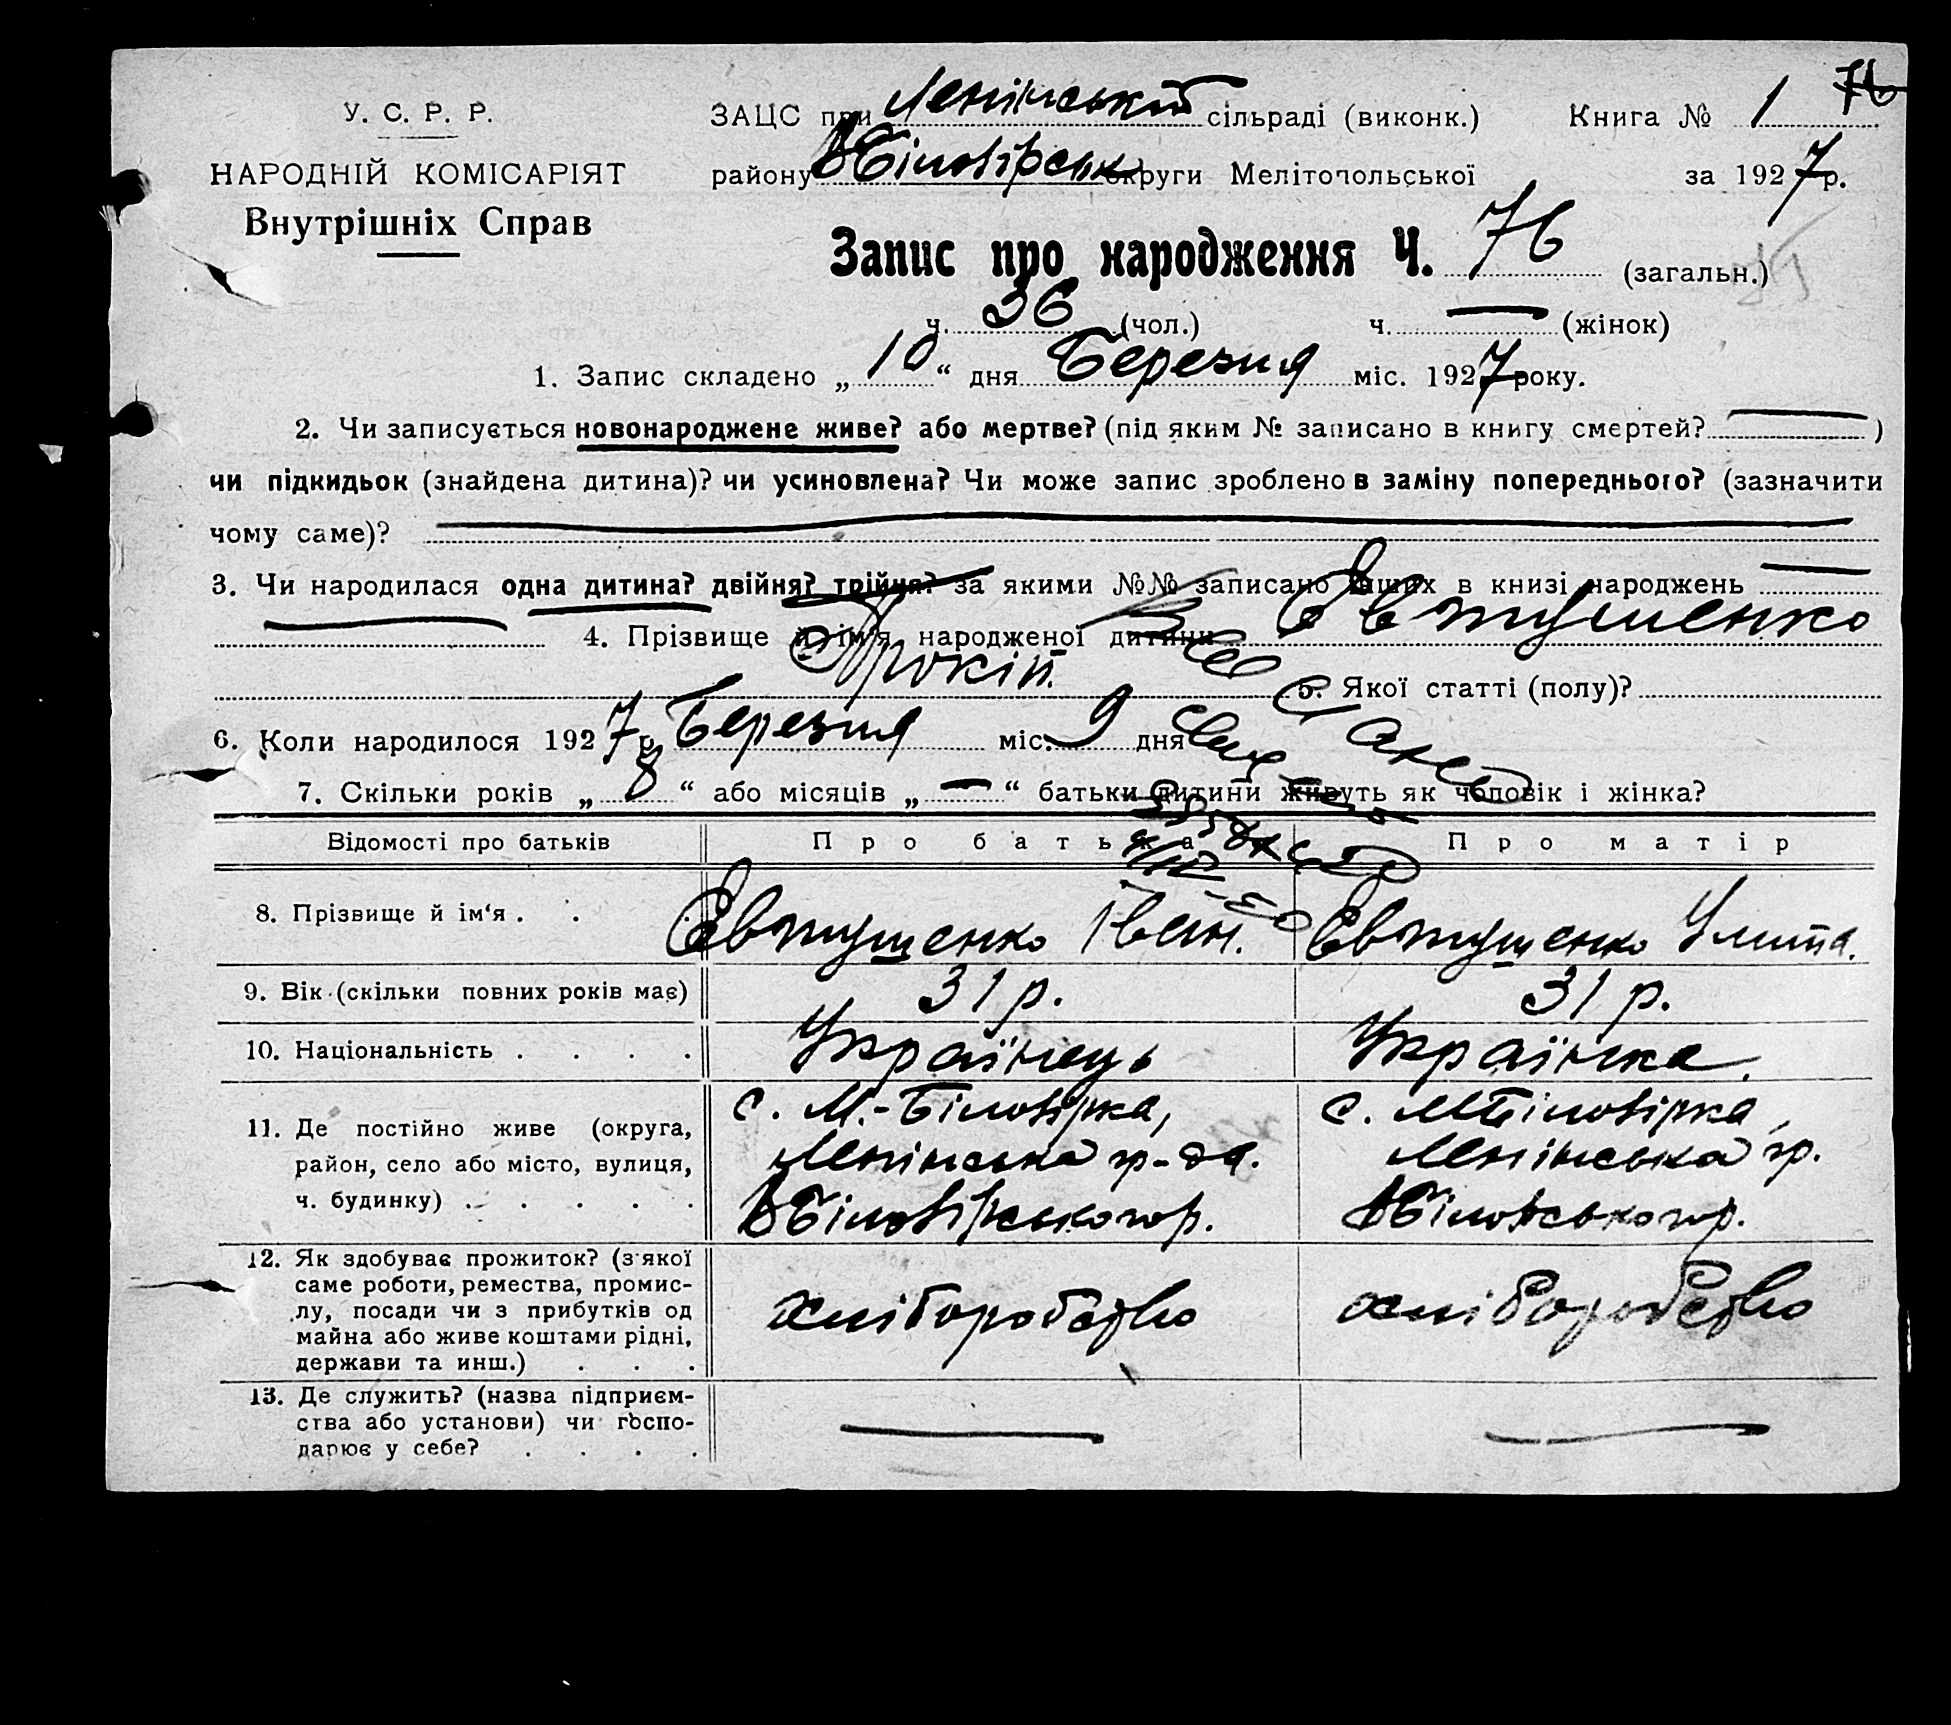 76
У. С. Р. Р.
НАРОДНІЙ КОМІСАРІЯТ
Внутрішніх Справ
ЗАЦС при Ленінський сільраді (виконк.) Книга № 1
району ВБілозірськ округи Мелітопольської за 1927 р.
Запис про народження Ч. 76 (загальн.)
ч. 36 (чол.) ч. — (жінок)
1. Запис складено „10“ дня Березня міс. 1927 року.
2. Чи записується новонароджене живе? або мертве? (під яким № записано в книгу смертей? — )
чи підкидьок (знайдена дитина)? чи усиновлена? Чи може запис зроблено в заміну попереднього? (зазначити
чому саме)? —
3. Чи народилася одна дитина? двійня? трійня? за якими №№ записано інших в книзі народжень —
— 4. Прізвище й ім'я народженої дитини Євтушенко
Прокіп. 5. Якої статті (полу)?
6. Коли народилося 1927 р. Березня міс. 9 дня
7. Скільки років „8“ або місяців „—“ батьки дитини живуть як чоловік і жінка?
Відомості про батьків Про батька Про матір
8. Прізвище й ім‘я . . Євтушенко Іван. Євтушенко Улита.
9. Вік (скільки повних років має) 31 р. 31 р.
10. Національність . . . . Українець Українка.
11. Де постійно живе (округа, с. М.-Білозірка, с. МБілозірка,
район, село або місто, вулиця, Ленінська гр-да. Ленінська гр.
ч. будинку) . . . . . ВБілозірського р.
12. Як здобуває прожиток? (з якої
саме роботи, ремества, промис-
лу, посади чи з прибутків од хліборобство хліборобство
майна або живе коштами рідні,
держави та инш.) . . .
13. Де служить? (назва підприєм-
ства або установи) чи госпо- — —
дарює у себе? . . . .